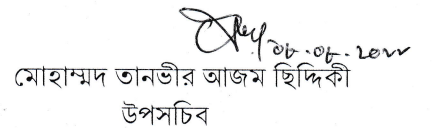 ০৮.০৮.২০২২
মোহাম্মদ তানভীর আজম ছিদ্দিকী
উপসচিব